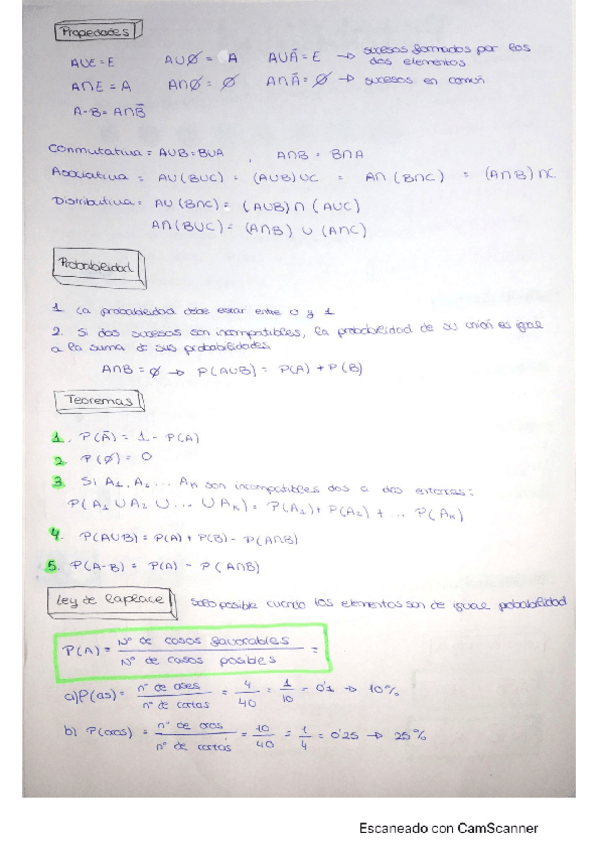 Propiedades
AUE = E   AU∅ = A   AUĀ = E → sucesos formados por los dos elementos
A∩E = A   A∩∅ = ∅   A∩Ā = ∅ → sucesos en común
A-B = A∩B̄
Conmutativa = AUB = BUA , A∩B = B∩A
Asociativa = AU(BUC) = (AUB)UC = A∩(B∩C) = (A∩B)∩C
Distributiva = AU(B∩C) = (AUB)∩(AUC)
A∩(BUC) = (A∩B) U (A∩C)
Probabilidad
1. La probabilidad debe estar entre 0 y 1
2. Si dos sucesos son incompatibles, la probabilidad de su unión es igual
a la suma de sus probabilidades
A∩B = ∅ → P(AUB) = P(A) + P(B)
Teoremas
1. P(Ā) = 1 - P(A)
2. P(∅) = 0
3. Si A₁, A₂ ... Aₖ son incompatibles dos a dos entonces:
P(A₁ U A₂ U ... U Aₖ) = P(A₁) + P(A₂) + ... P(Aₖ)
4. P(AUB) = P(A) + P(B) - P(A∩B)
5. P(A-B) = P(A) - P(A∩B)
Ley de Laplace   solo posible cuando los elementos son de igual probabilidad
P(A) = Nº de casos favorables / Nº de casos posibles =
a) P(as) = nº de ases / nº de cartas = 4/40 = 1/10 = 0'1 → 10%
b) P(oros) = nº de oros / nº de cartas = 10/40 = 1/4 = 0'25 → 25%
Escaneado con CamScanner